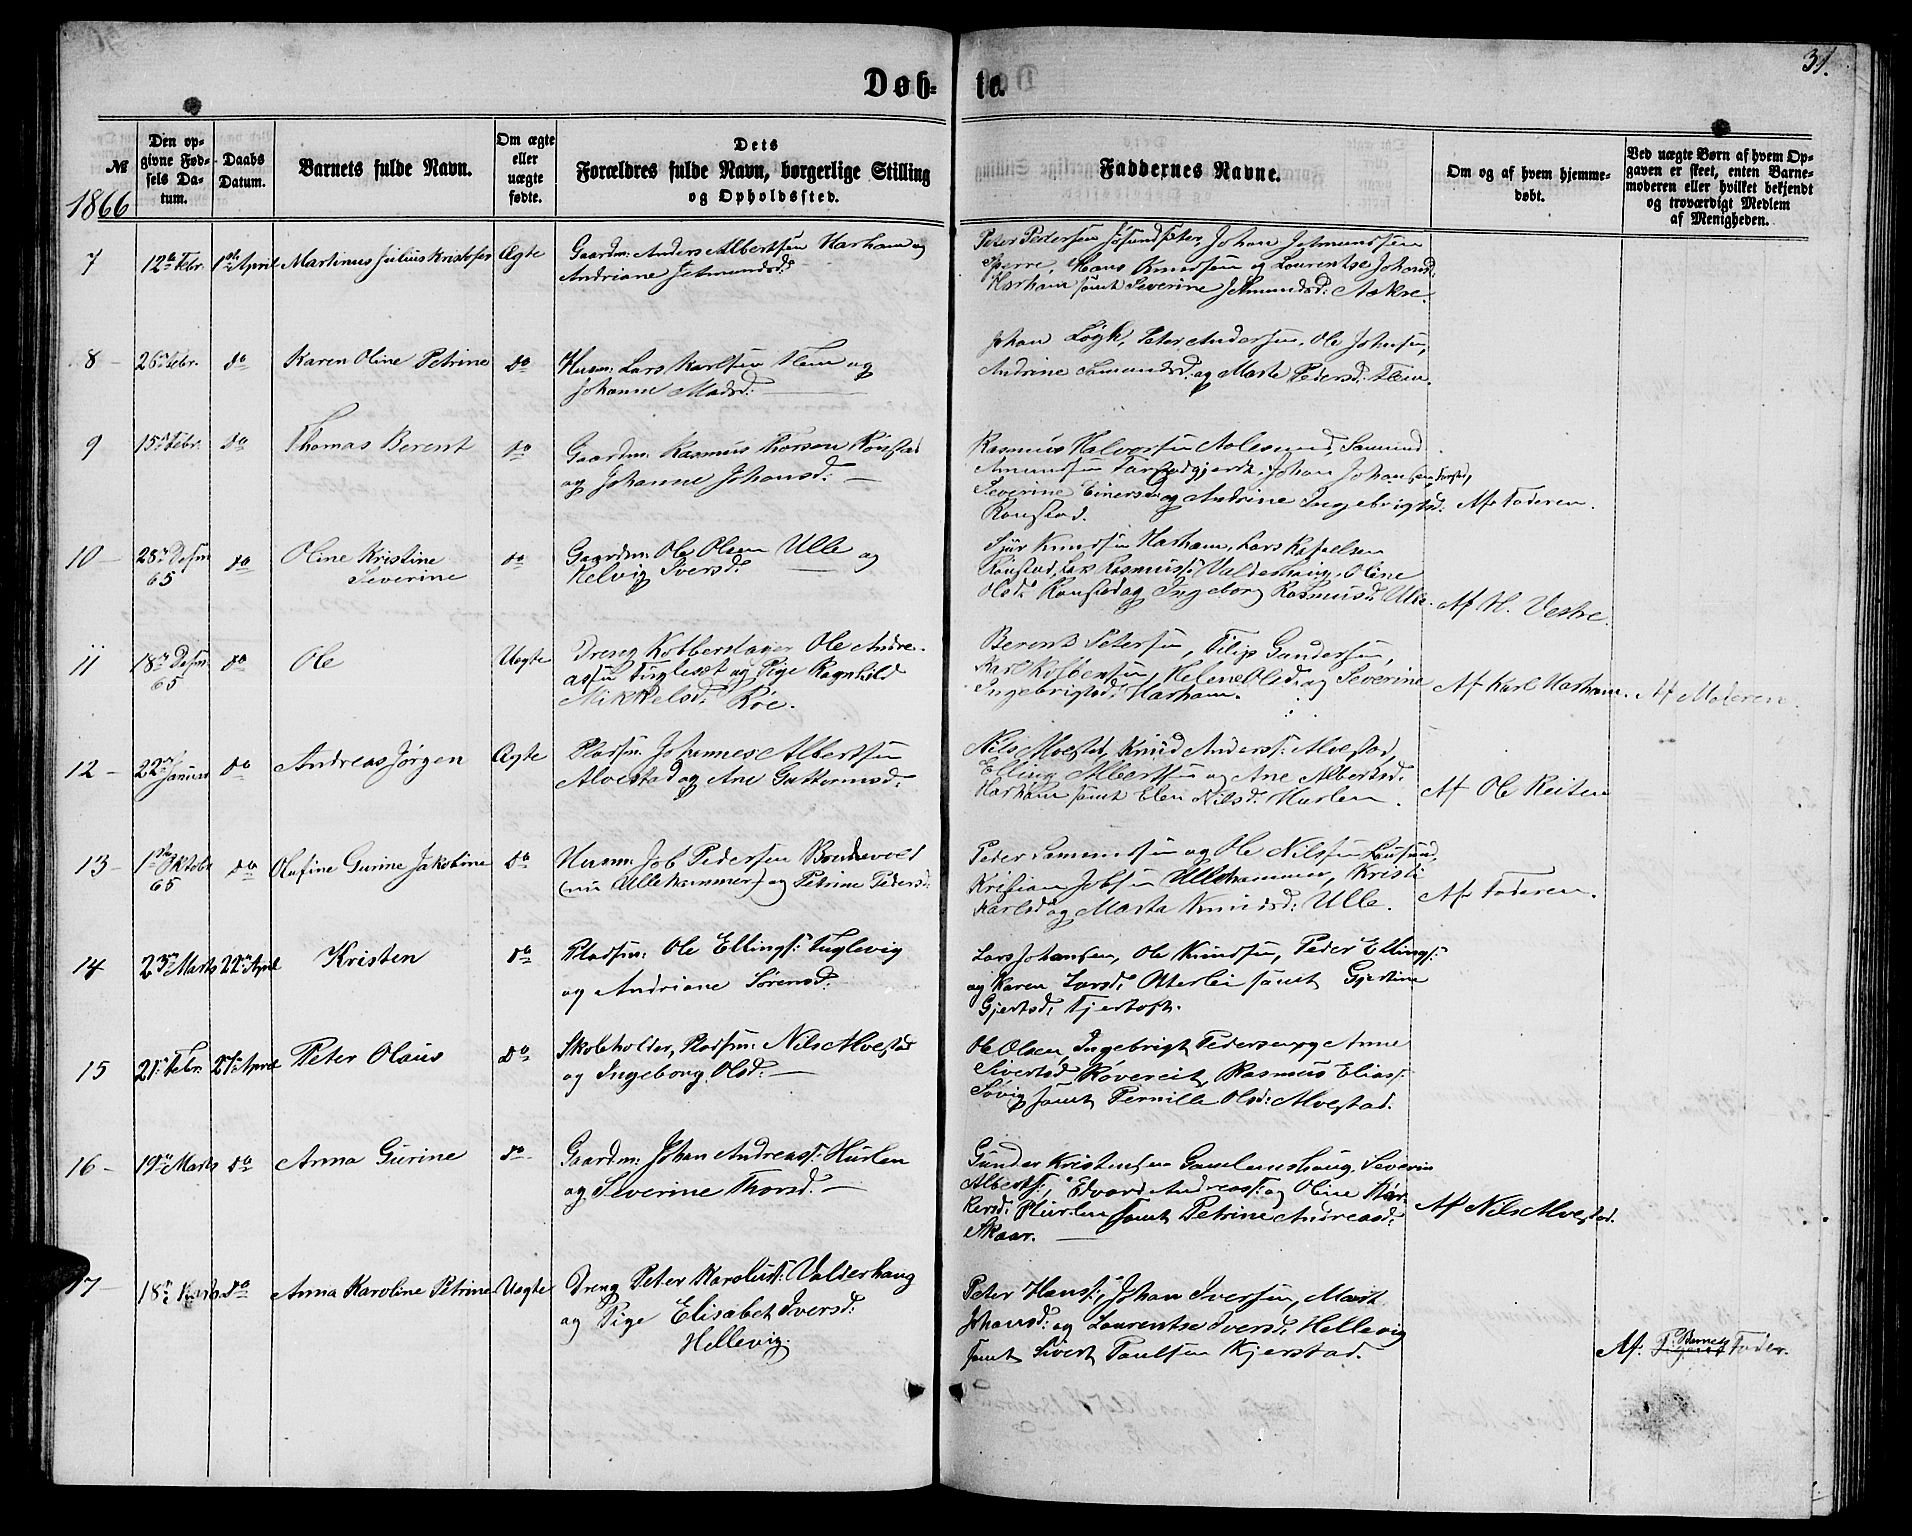 31.
Døb- te.
№
Den op-
givne Fød-
sels Da-
tum.
Daabs
Datum.
Barnets fulde Navn.
Om ægte
eller
uægte
fødte.
Dets
Forældres fulde Navn, borgerlige Stilling
og Opholdssted.
Faddernes Navne.
Om og af hvem hjemme-
døbt.
Ved uægte Børn af hvem Op-
gaven er skeet, enten Barne-
moderen eller hvilket bekjendt
og troværdigt Medlem
af Menigheden.
1866
7 12te Febr. 1ste April Martinus Julius Kristofer Ægte
Gaardm: Anders Albertsen Harham og
Andriane Jetmundsd:
Peter Pedersen Johan Jetmundsen
Hans Knudsen og Laurentse Johansd:
Harham samt Severine Jetmundsd: Aakre.
8 - 26 Febr. do Karen Oline Petrine do
Husm: Lars Karlsen Flem og
Johanne Madsd:
Johan Løgh, Peter Andersen, Ole Johnsen,
Andrine Samundsd: og Marte Pedersd: Flem.
9 15 Febr. do Thomas Berent do
Gaardm: Rasmus Thorsen Rønstad
og Johanne Johansd: -
Rasmus Halvorsen Aalesund, Samund
Amundsen Johan Johansen
Severine Einersd: og Andrine Ingebrigtsd:
Rønstad.
Af Faderen.
10 - 28 Desm 65 do Oline Kristine
Severine do
Gaardm: Ole Olsen Ulle og
Helvig Iversd:
Sjur Knudsen Harham, Lars
Rønstad, Lars Rasmuss: Valderhaug, Oline
Olsd: Rønstad og Ingeborg Rasmusd: Ulle.
Af H. Vestre.
11 18 Desm. 65 do Ole Uegte
Dreng Kobberslager Ole Andre-
assen og Pige Ragnhild
Mikkelsd: Røe.
Berent Petersen, Filip Gundersen,
Karl Helene Olsd: og Severine
Ingebrigtsd: Harham.
Af Karl Harham. Af Moderen.
12 - 22 Januar do Andreas Jørgen Ægte
Pladsm: Johannes Albertsen
Alvestad og Ane Guttormsd:
Nils Alvestad, Knud Anderss: Alvestad,
Elling Albertsen og Ane Albertsd:
Harham samt Elen Nilsd: Hurlen.
Af Ole Reiten
13 - 1ste Oktobr 65 do Olufine Gurine Jakobine do
Husm: Job Pedersen Brudevold
(nu Ullehammer) og Petrine Pedersd:
Peder Samundsen og Ole Nilsen
Kristian Jobsen Ullehammer, Kristi
Karlsd: og Marta Knudsd: Ulle.
Af Faderen.
14 23 Marts 22 April Kristen do
Pladsm: Ole Ellings: Fuglevig
og Andriane Sørensd:
Lars Johansen, Ole Knudsen, Peder Ellings:
og Karen Larsd: Otterlei samt Gjertine
Gjertsd: Fjertoft.
15 21 Febr. 27 April Peter Olaus do
Skoleholder, Pladsm: Nils Alvestad
og Ingeborg Olsd: -
Ole Olsen, Ingebrigt Pedersen og Anne
Sivertsd: Røvereit, Rasmus Elias:
Søvig samt Pernille Olsd: Alvestad.
16 - 19 Marts do Anna Gurine do
Gaardm: Johan Andreass: Hurlen
og Severine Thorsd: -
Gunder Kristensen Gamlemshaug, Severin
Alberts:, Edvard Andreass: og Oline Peder-
sd: Hurlen samt Petrine Andreasd:
Skaar.
Af Nils Alvestad.
17 - 18 Marts do Anna Karoline Petrine Uegte
Dreng Peter Karoliuss: Valderhaug
og Pige Elisabet Iversd:
Hellevig.
Peter Hans:, Johan Iversen, Mart
Johansd: og Laurentse Iversd: Hellevig
samt Sivert Paulsen Kjerstad.
Af: Barnets Fader.